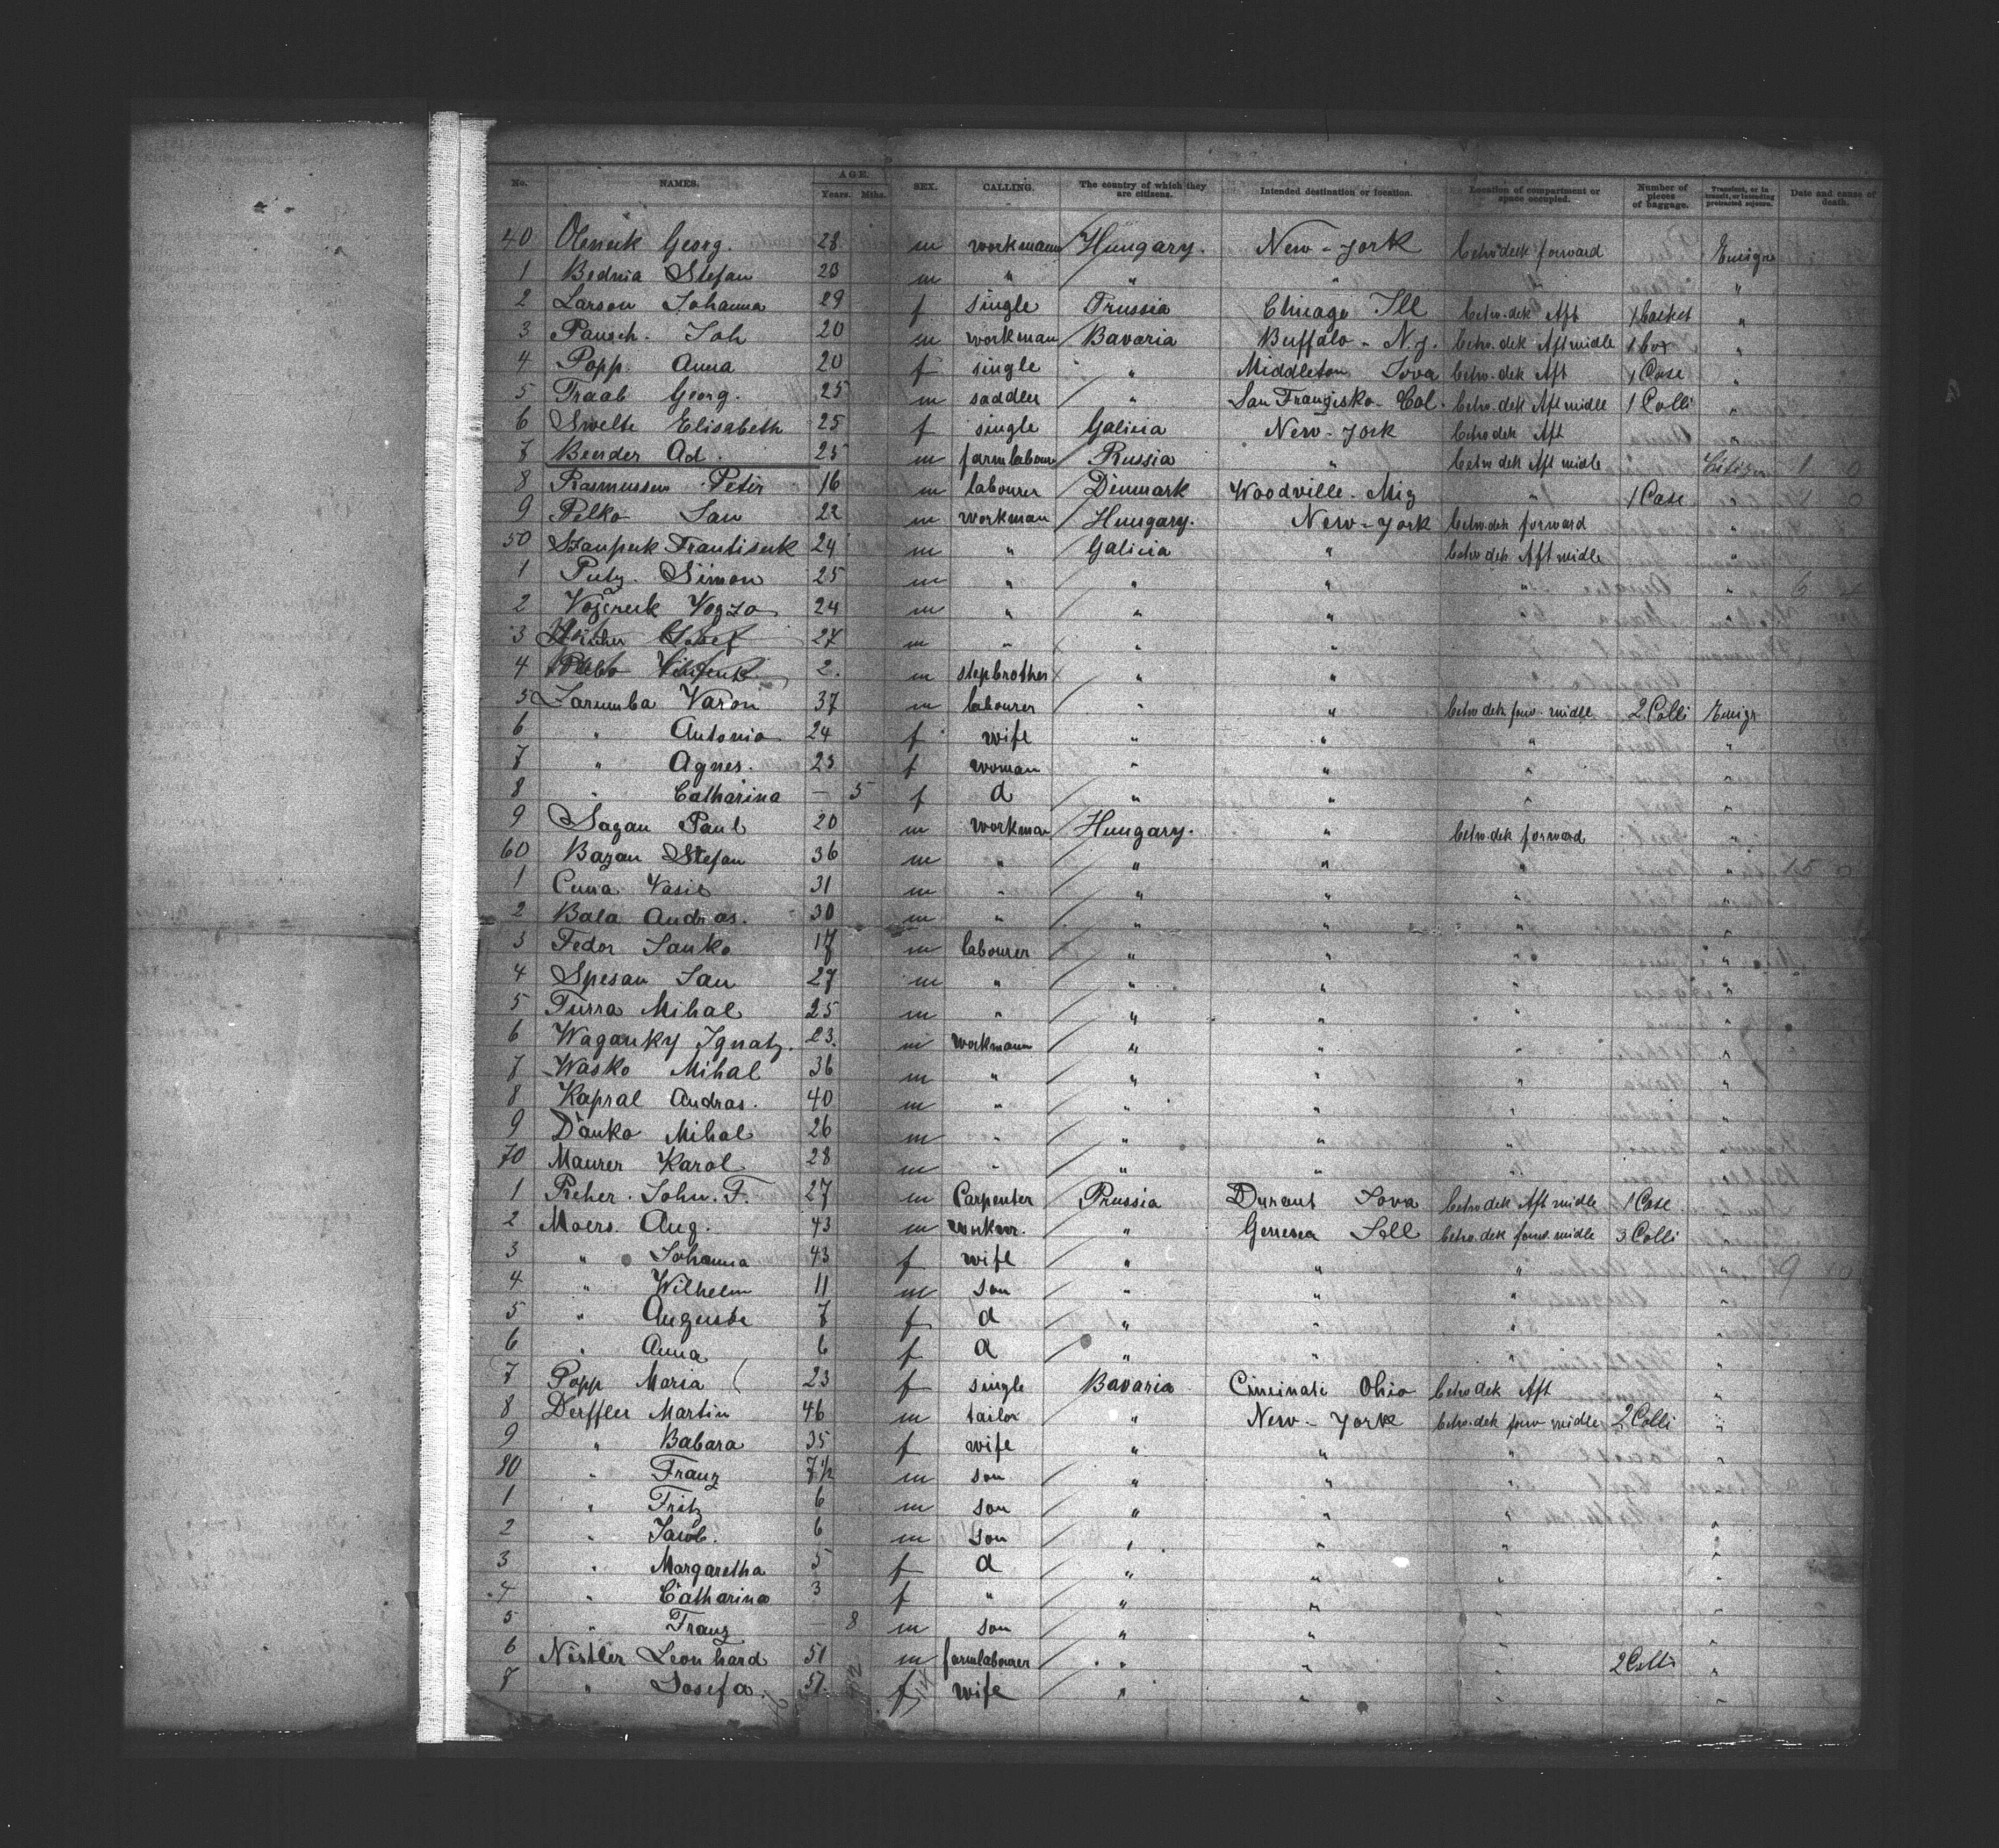 No. NAMES. AGE. Years. Mths. SEX. CALLING. The country of which they are citizens. Intended destination or location. Location of compartment or space occupied. Number of pieces of baggage. Transient, or in transit, or intending protracted sojourn. Date and cause of death.
40 Georg. 28 m workmann Hungary. New-York betw deck forward Emigr
1 Stefan 23 m " " "
2 Larson Johanna 29 f single Prussia Chicago Ill betw. dek Aft 1 basket "
3 Pausch. Joh 20 m workman Bavaria Buffalo - N.y. betw. dek Aft midle 1 box "
4 Popp. Anna 20 f single " Middleton Iova betw. dek Aft 1 Case "
5 Traab Georg. 25 m saddler " San Franzisko - Cal. betw. dek Aft midle 1 Colli "
6 Swelte Elisabeth 25 f single Galicia New-York betw dek Aft
7 Beerder Ad. 25 m farmlabour Russia " betw dek Aft midle Citizen
8 Rasmussen Peter 16 m labourer Denmark Woodville. Mig " 1 Case
9 Pelko Jan 22 m workman Hungary. New-York betw. dek forward "
50 24 m " Galicia " betw dek Aft midle "
1 Putz. Simon 25 m " " " " "
2 24 m " " "
3 27 m " " "
4 2. m stepbrother " "
5 Jarumba Varon 37 m labourer " " betw dek forw. midle 2 Colli Emigr
6 " Antonia 24 f wife " " " "
7 " Agnes. 23 f woman " " " "
8 " Catharina – 5 f d " " " "
9 Sagan Paul 20 m workman Hungary. " betw. dek forward "
60 Bazan Stefan 36 m " " " " "
1 Cuna Vasil 31 m " " " " "
2 Bala Andras. 30 m " " " " "
3 Fedor Janko 17 m labourer " " " "
4 Spesan Jan 27 m " " " " "
5 Turra Mihal 25 m " " " " "
6 Waganky Ignatz. 23. m workmann " " " "
7 Wasko Mihal 36 m " " " " "
8 Kapral Andras. 40 m " " " " "
9 Danko Mihal 26 m " " " " "
70 Maurer Karol 28 m " " " " "
1 Reher. John. F. 27 m Carpenter Prussia Durant Iova betw dek Aft midle 1 Case "
2 Moers. Aug. 43 m " Geneseo Ill betw. dek forw. midle 3 Colli "
3 " Johanna 43 f wife " " " "
4 " Wilhelm 11 m son " " " "
5 " Auguste 7 f d " " " "
6 " Anna 6 f d " " " "
7 Popp Maria 23 f single Bavaria Cincinati Ohio betw dek Aft "
8 Derffler Martin 46 m tailor " New-York betw. dek forw midle 2 Colli "
9 " Babara 35 f wife " " " "
80 " Franz 7½ m son " " " "
1 " Fritz 6 m son " " " "
2 " Jacob. 6 m son " " " "
3 " Margaretha 5 f d " " " "
4 " Catharina 3 f " " " " "
5 " Franz – 8 m son " " " "
6 Nistler Leonhard 51 m farmlabourer " " " 2 Colli "
7 " Josefa. 51. f wife " " " "